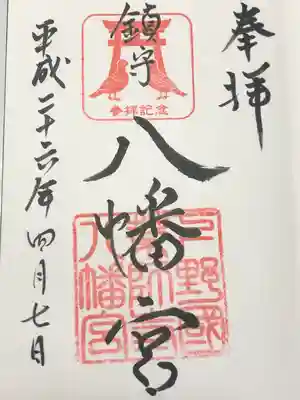 奉拝
鎮守
八幡宮
平成二十六年四月七日
参拝記念
八幡宮